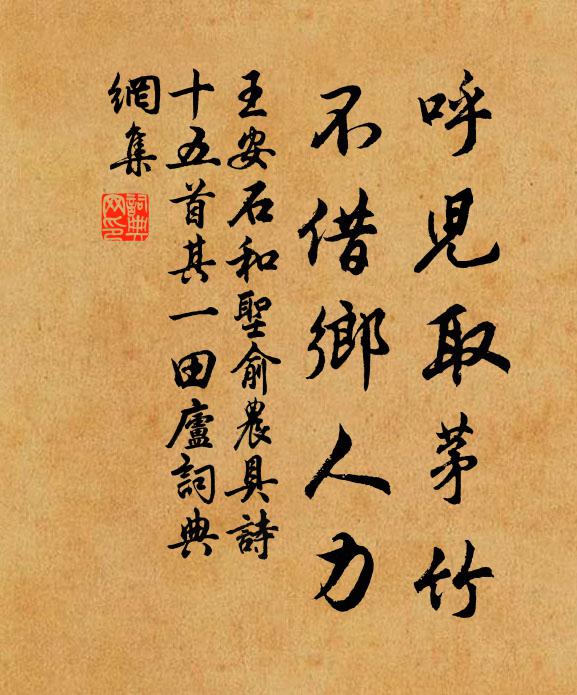 呼児取茅竹
不借鄉人力
王安石和聖俞農具詩
十五首其一田廬詞典
網集
詞典網印